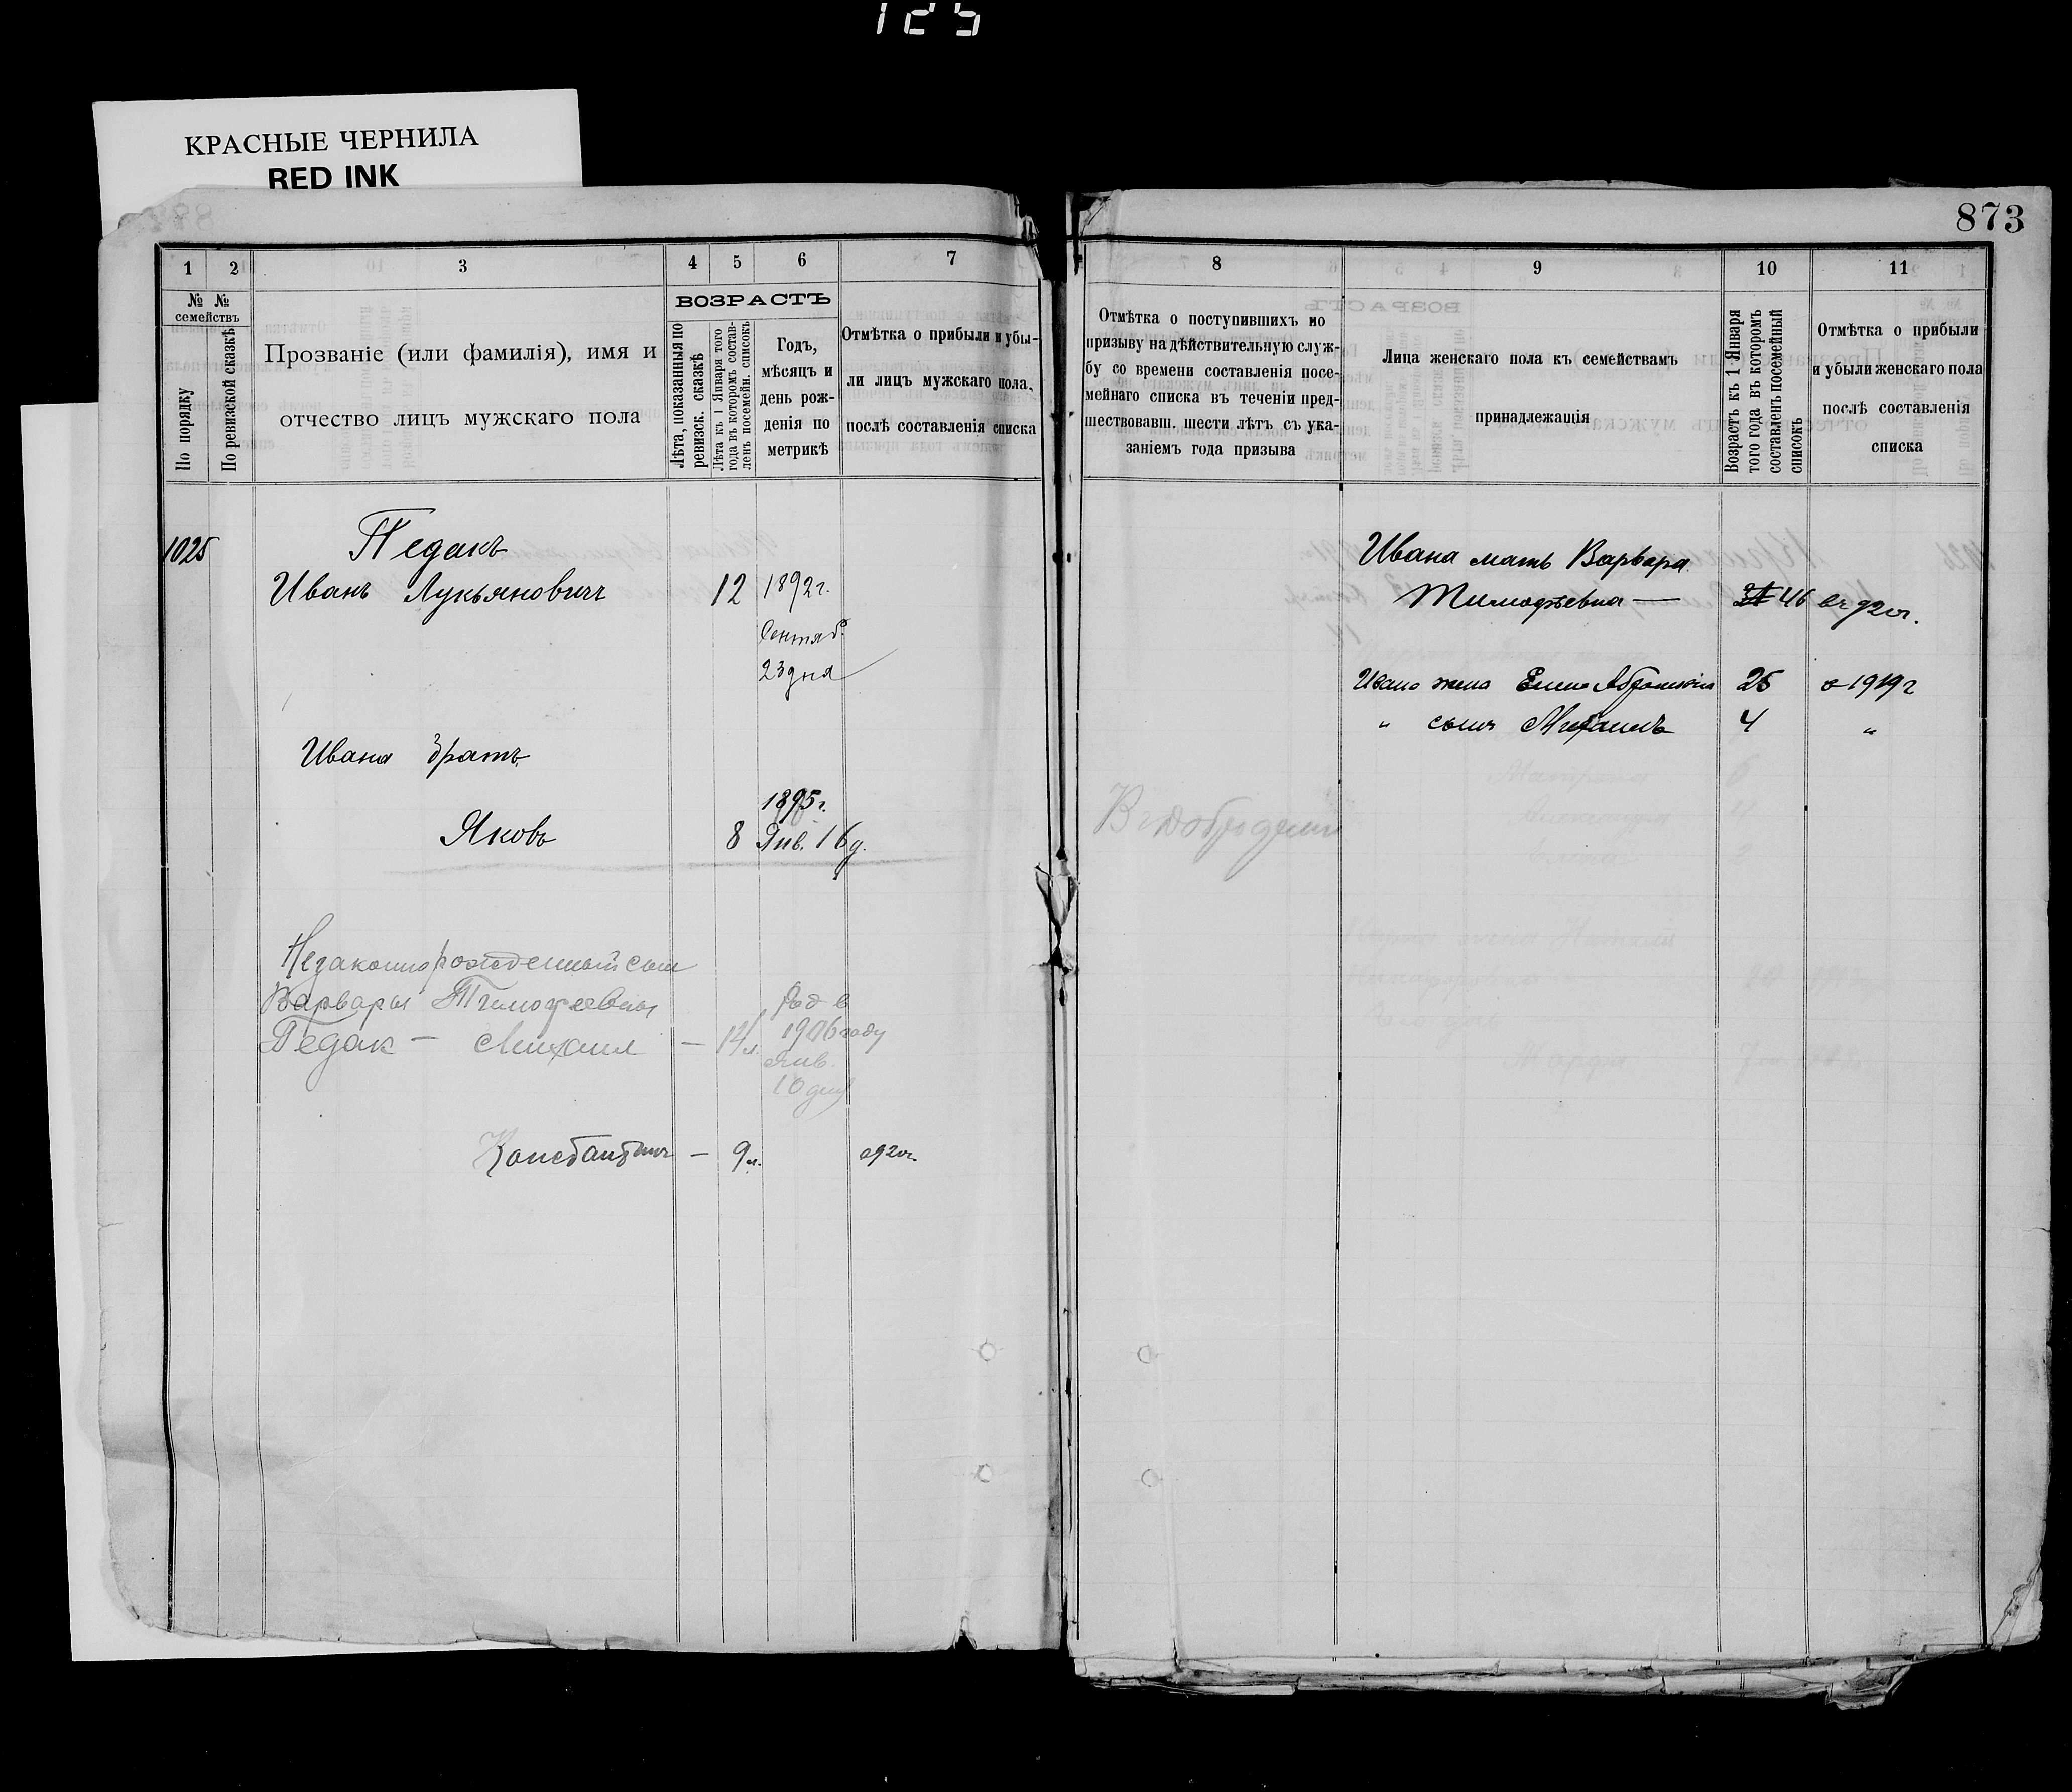 125
КРАСНЫЕ ЧЕРНИЛА
RED INK
873
1 2 3 4 5 6 7
№ №
семействъ
По порядку
По ревизской сказкѣ
Прозваніе (или фамилія), имя и
отчество лицъ мужскаго пола
ВОЗРАСТЪ
Лѣта, показанныя по
ревизск. сказкѣ
Лѣта къ 1 Января того
года въ которомъ состав-
ленъ посемейн. списокъ
Годъ,
мѣсяцъ и
день рож-
денія по
метрикѣ
Отмѣтка о прибыли и убы-
ли лицъ мужскаго пола,
послѣ составленія списка
1025
Педакъ
Иванъ Лукьяновичъ 12 1892 г.
Сентяб.
23 дня
Ивана братъ
1895 г.
Яковъ 8 Янв. 16 д.
Незаконнорожденный сын
Варвары Тимофеевны
Педак — Михаил — 14 л.
Род в
1906 году
Янв.
10 дня
Константинъ — 9 л. 920 г.
8 9 10 11
Отмѣтка о поступившихъ по
призыву на дѣйствительную служ-
бу со времени составленія посе-
мейнаго списка въ теченіи пред-
шествовавш. шести лѣтъ съ ука-
заніемъ года призыва
Лица женскаго пола къ семействамъ
принадлежащія
Возрастъ къ 1 Января
того года въ которомъ
составленъ посемейный
списокъ
Отмѣтка о прибыли
и убыли женскаго пола
послѣ составленія
списка
Ивана мать Варвара
Тимофѣевна — 46 въ 920 г.
Ивана жена Елена 25 1919 г
" сынъ Михаилъ 4 "